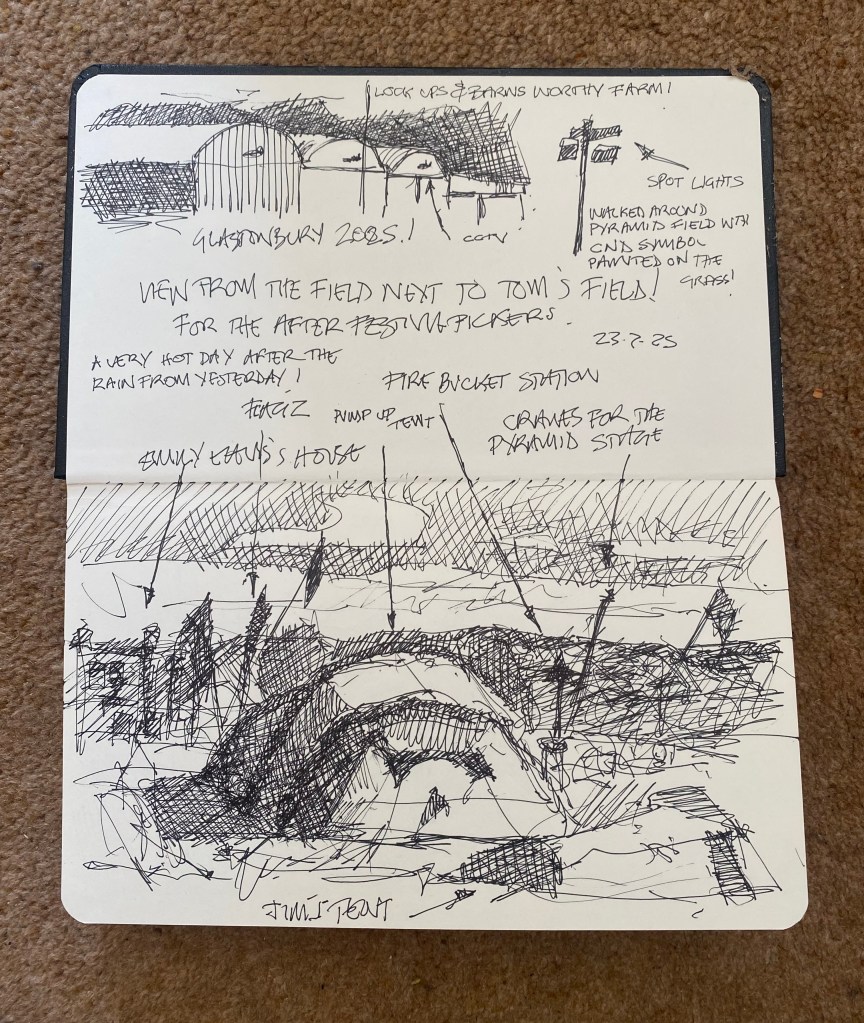 LOCK UPS & BARNS WORTHY FARM!
SPOT LIGHTS
WALKED AROUND
PYRAMID FIELD WITH
CND SYMBOL
PAINTED ON THE
GRASS!
GLASTONBURY 2025!
CCTV
VIEW FROM THE FIELD NEXT TO TOM'S FIELD!
FOR THE AFTER FESTIVAL PICKERS.
23.7.25
A VERY HOT DAY AFTER THE
RAIN FROM YESTERDAY!
FIRE BUCKET STATION
PUMP UP
TENT
CRANES FOR THE
PYRAMID STAGE
EMILY HOUSE
JIM'S TENT